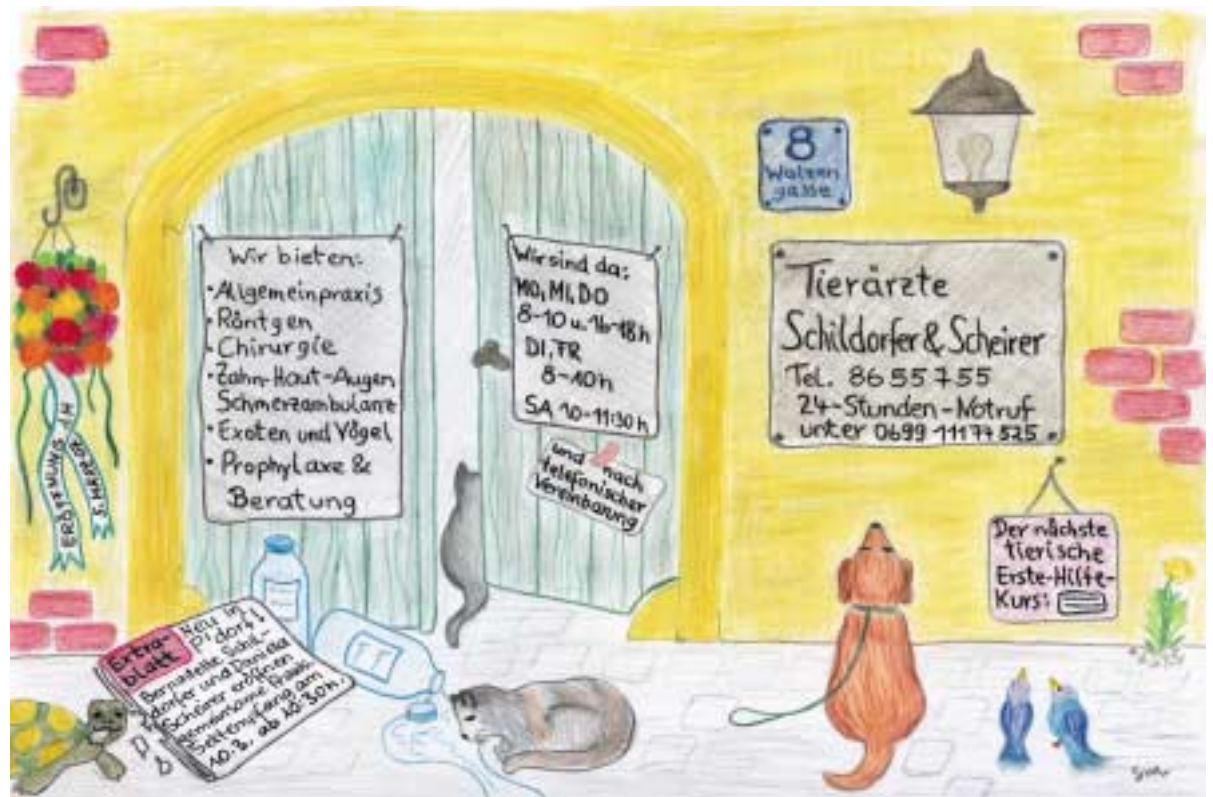 8
Walzen
gasse
Wir bieten:
• Allgemeinpraxis
• Röntgen
• Chirurgie
• Zahn-Haut-Augen
Schmerzambulanz
• Exoten und Vögel
• Prophylaxe &
Beratung
Wir sind da:
MO, MI, DO
8-10 u. 16-18h
DI, FR
8-10h
SA 10-11:30h
und nach
telefonischer
Vereinbarung
Tierärzte
Schildorfer & Scheirer
Tel. 86 55 7 55
24-Stunden-Notruf
unter 0699
Der nächste
tierische
Erste-Hilfe-
Kurs:
ERÖFFNUNG
3. MÄRZ
Extra-
blatt
Neu in
P'dorf!
Bernadette Schil-
dorfer und Daniela
Scheirer eröffnen
gemeinsame Praxis
Sektempfang am
10.3. ab 10:30h.